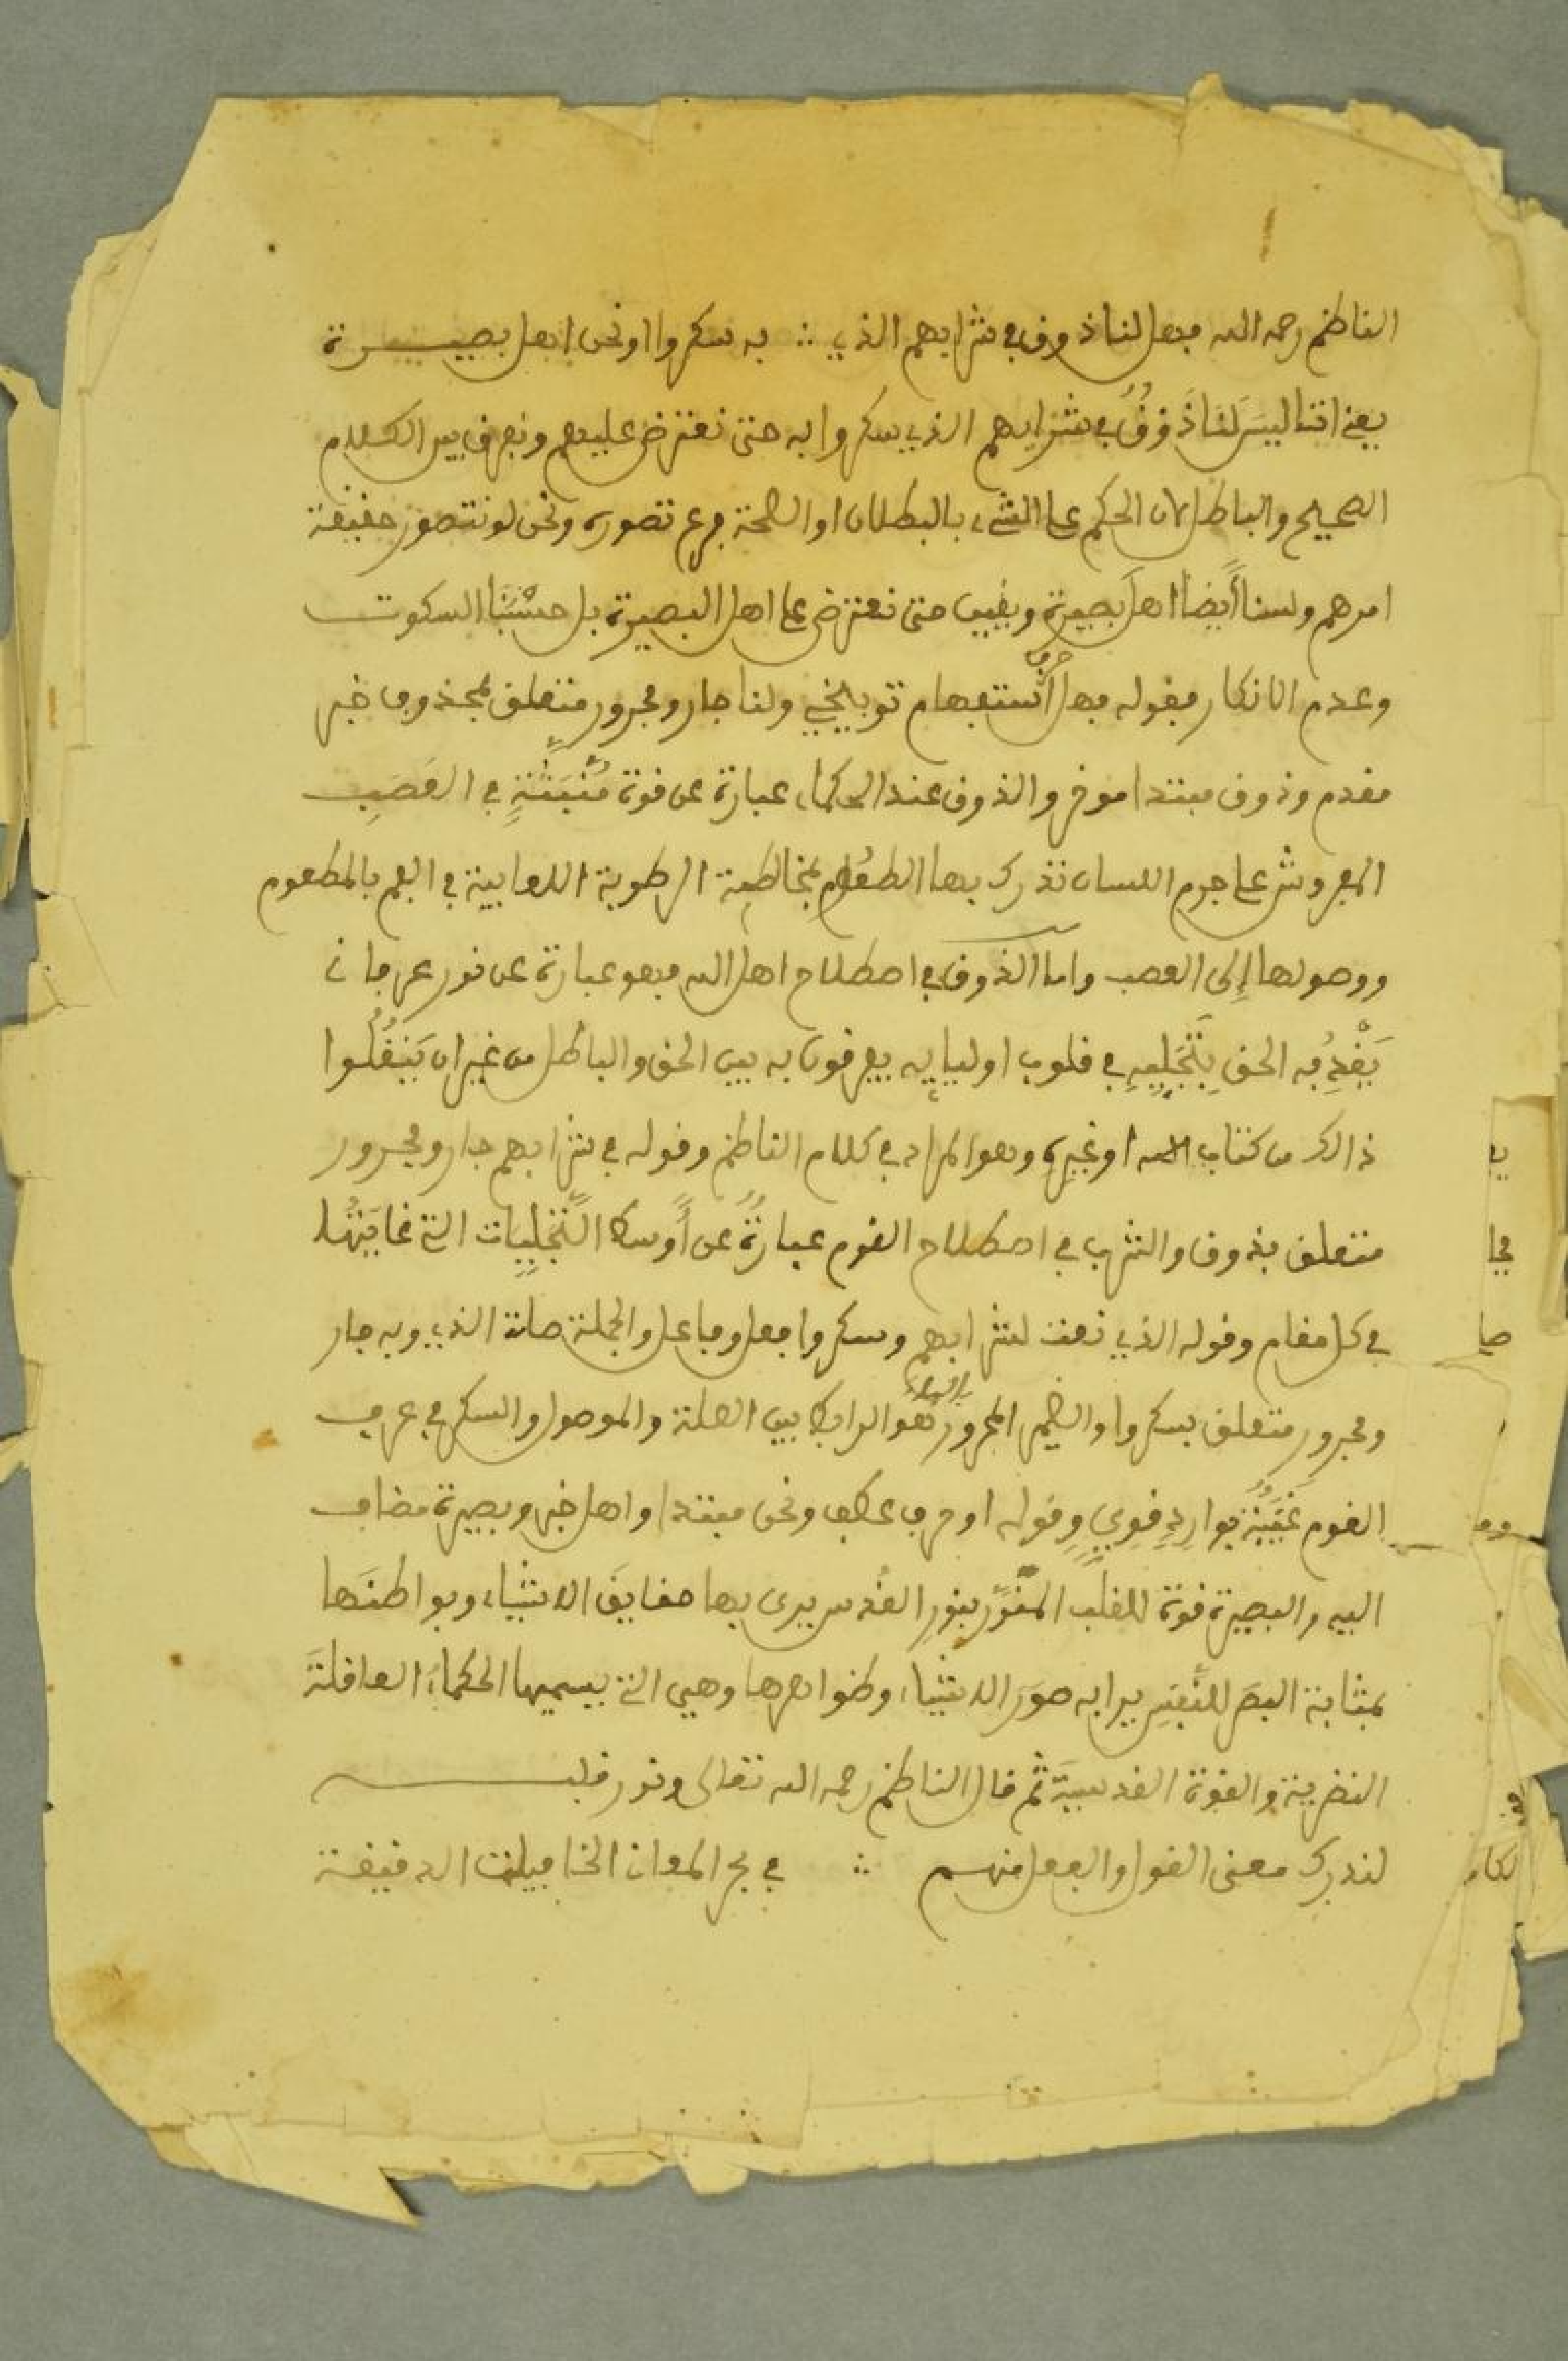 الناظم رحمه الله فهل لنا ذوق في شرابهم الذي ∴ به سكروا او نحن اهل بصيرة
يعني اننا ليسَ لنا ذَوْقُ في شرابهم الذي سكروا به حتى نعترض عليهم ونفرق بين الكلام
الصحيح والباطل لان الحكم على الشيء بالبطلان او الصحة فرع تصوره ونحن لو نتصور حقيقة
امرهم ولسنا أيضًا اهلَ بصيرة ويقين حتى نعترض على اهل البصيرة بل حسْبُنا السكوت
وعدم الانكار فقوله فهل حرف استفهام توبيخي ولنا جار ومجرور متعلق بمحذوف خبر
مقدم وذوق مبتدا موخر والذوق عند الحكماء عبارة عن قوة مُنْبَثَّةٍ في العَصَبِ
المفروش على جرم اللسان تدرك بها الطعُوم بمخالطة الرطوبة اللعابية في الفم بالمطعوم
ووصولها إلى العصب واما الذوق في اصطلاح اهل الله فهو عبارة عن نور عرفاني
يَقْذِفُه الحق بِتَجَلِّيهِ في قلوب اوليايِه يفرقون به بين الحق والباطل من غير ان يَنْقُلُوا
ذالك من كتاب الله او غيرِه وهو المراد في كلام الناظم وقوله في شرابهم جار ومجرور
متعلق بذوق والشرب في اصطلاح القوم عبارةٌ عن أَوسط التَّجلِّيات التي غايتُها
في كل مقام وقوله الذي نعت لشرابهم وسكروا فعل وفاعل والجملة صلة الذي وبه جار
ومجرور متعلق بسكروا والضمير المجرور بالباء هو الرابط بين الصلة والموصول والسكر في عرف
القوم غَيْبَةٌ بوارِدٍ قويٍّ وقوله او حرف عطف ونحن مبتدا واهل خبر وبصيرة مضاف
اليه والبصيرة قوة للقلب المنَوَّر بنورِ القدس يرى بها حقايقَ الاشياء وبواطنَها
بمثابة البصَر للنَّفسِ يرا به صوَرَ الاشياء وظواهرها وهي التي يسميها الحكماءُ العاقلةَ
النضرية والقوة القدسيَّة ثم قال الناظم رحمه الله تعالى ونور قلبه
لندرك معنى القول والفعل منهم ∴ في بحر المعان الخافيات الدقيقة